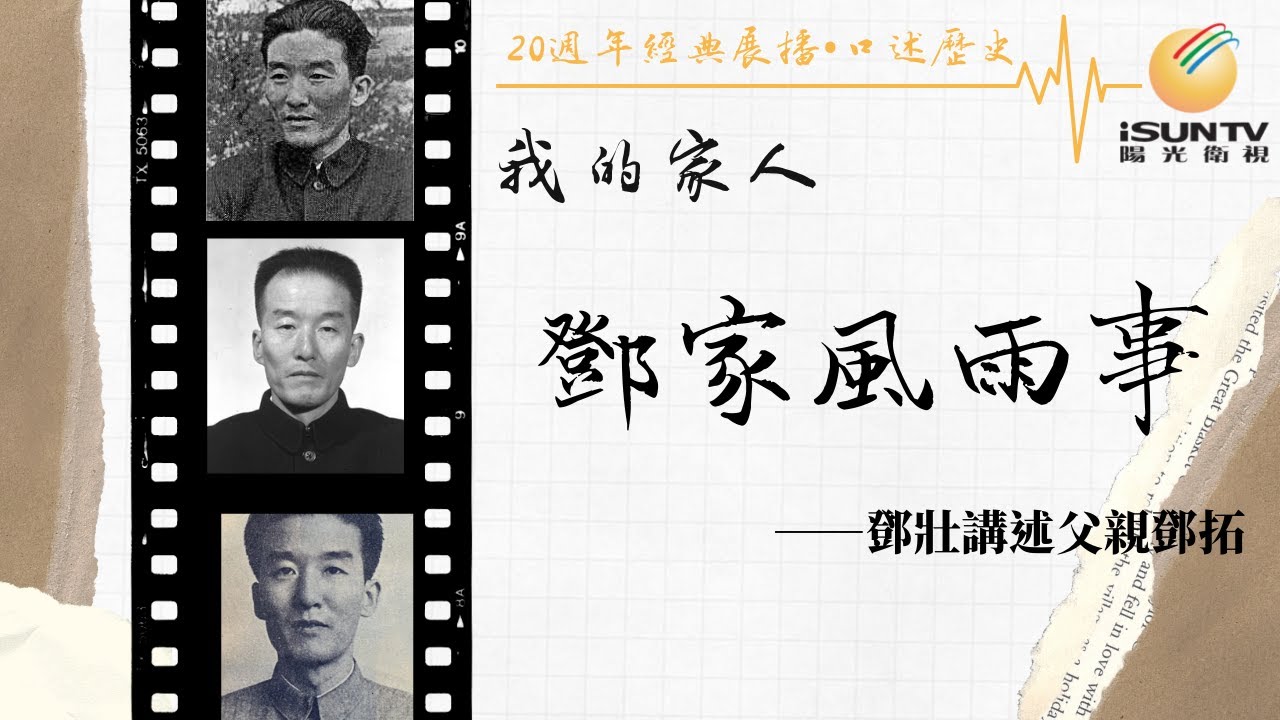 20週年經典展播•口述歷史
iSUNTV
陽光衛視
我的家人
鄧家風雨事
——鄧壯講述父親鄧拓
TX 5063
10
9A
9
8A
5063
the Great
and fell in love with
the village
holiday